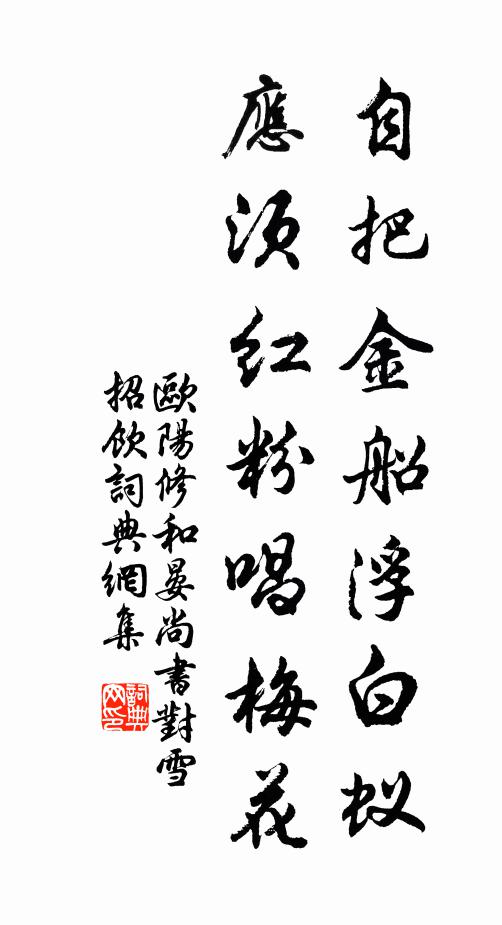 自把金船浮白蚁
應須紅粉唱梅花
歐陽修和晏尚書對雪
招飲詞典網集
詞典
网印